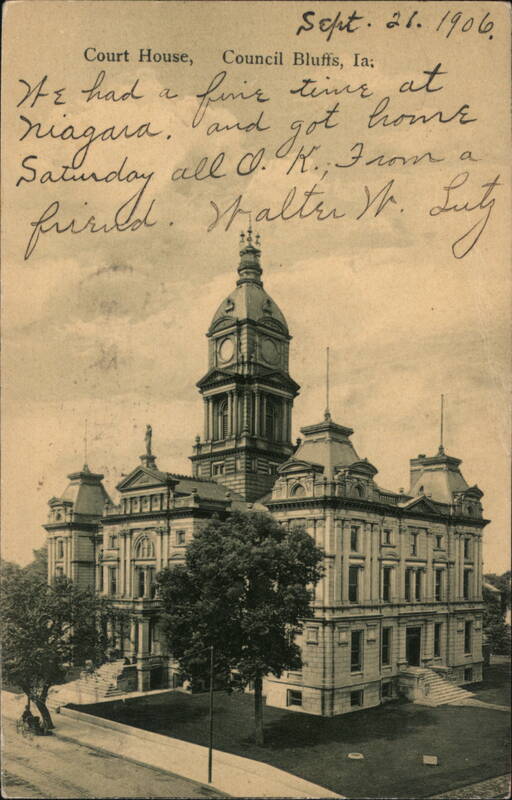 Sept. 21. 1906.
Court House, Council Bluffs, Ia;
We had a fine time at
Niagara. and got home
Saturday all O. K., From a
friend. Walter W. Lutz